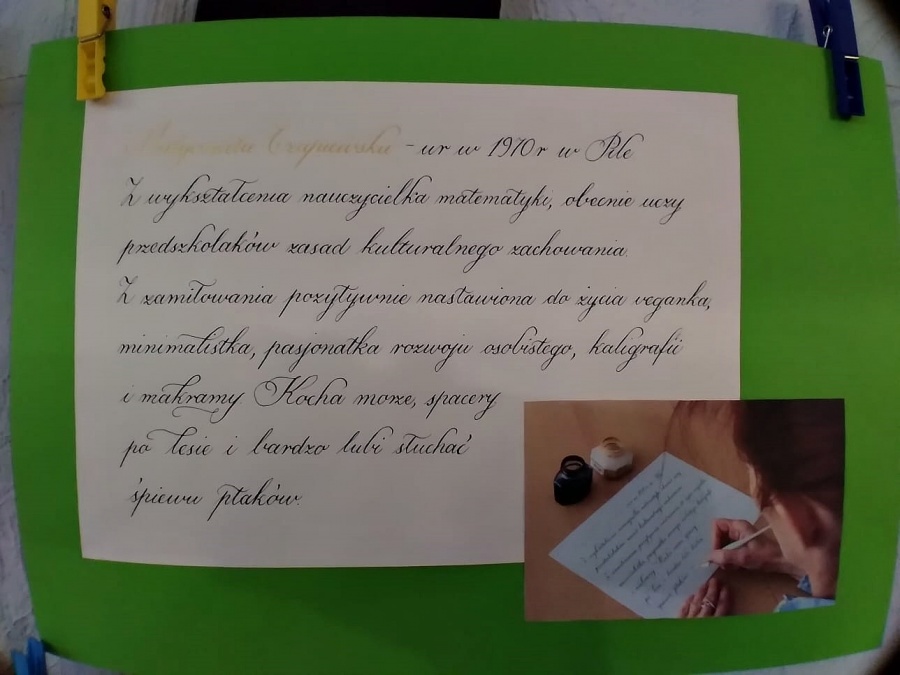 - ur w 1970 r w Pile
Z wykształcenia nauczycielka matematyki, obecnie uczy
przedszkolaków zasad kulturalnego zachowania.
Z zamiłowania pozytywnie nastawiona do życia weganka,
minimalistka, pasjonatka rozwoju osobistego, kaligrafii
i makramy. Kocha morze, spacery
po lesie i bardzo lubi słuchać
śpiewu ptaków.